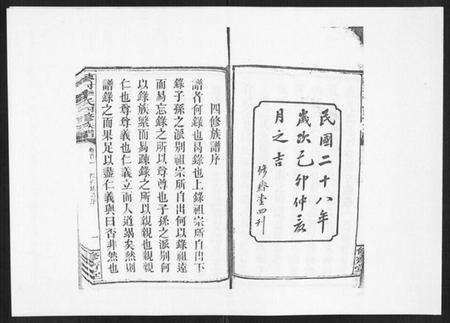 民國二十八年
歲次己卯仲夏
月之吉
修齊堂四刊
四修族譜序
譜者何錄也曷錄也上錄祖宗所自出下
錄子孫之派別祖宗所自出何以錄祖遠
而易忘錄之所以尊尊也子孫之派別何
以錄族繁而易疎錄之所以親親也親親
仁也尊尊義也仁義立而人道竭矣然則
譜錄之而果足以盡仁義與曰否非然也